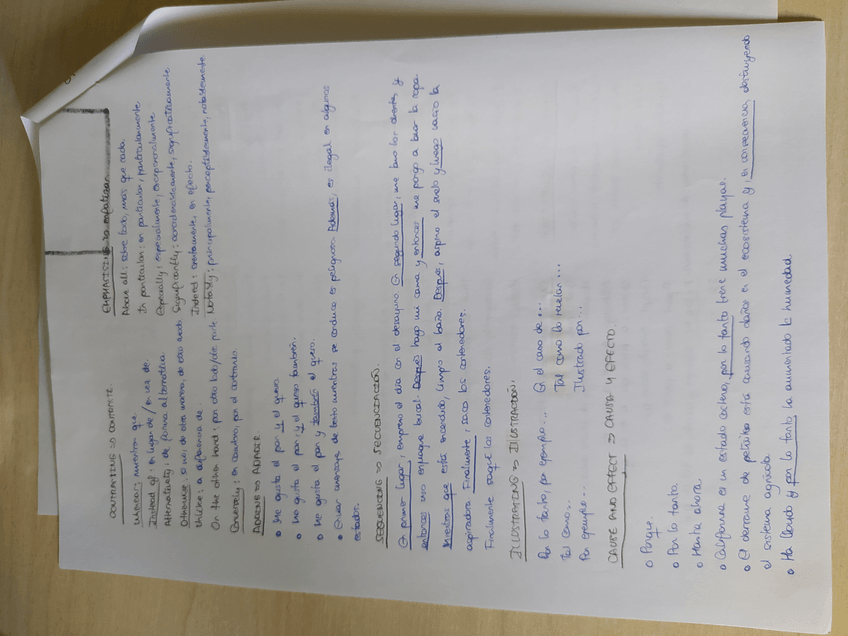 CONTRASTING => CONTRASTE.
Whereas: mientras que.
Instead of: en lugar de / en vez de.
Alternatively: de forma alternativa
Otherwise: si no, de otra manera, de otro modo
Unlike: a diferencia de.
On the other hand: por otro lado/otra parte
Conversely: en cambio, por el contrario
EMPHASISING => enfatizar.
Above all: sobre todo, más que nada.
In particular: en particular, particularmente
Especially: especialmente, excepcionalmente.
Significantly: considerablemente, significativamente
Indeed: ciertamente, en efecto.
Notably: principalmente, perceptiblemente, notablemente
ADDING => AÑADIR
Me gusta el pan y el queso.
Me gusta el pan y el queso también.
Me gusta el pan y también el queso.
Enviar mensajes de texto mientras se conduce es peligroso. Además, es ilegal en algunos
estados.
SEQUENCING => SECUENCIACIÓN.
En primer lugar, empiezo el día con el desayuno. En segundo lugar, me lavo los dientes y
entonces uso enjuague bucal. Después hago mi cama y entonces me pongo a lavar la ropa.
Mientras que está encendida, limpio el baño. Después, aspiro el suelo y luego vacío la
aspiradora. Finalmente, saco los contenedores.
Finalmente saqué los contenedores.
ILLUSTRATING => ILUSTRACIÓN:
Por lo tanto, por ejemplo... En el caso de...
Tal como... Tal como lo revelan...
Por ejemplo... Ilustrado por...
CAUSE AND EFFECT => CAUSA Y EFECTO.
Porque.
Por lo tanto.
Hasta ahora.
California es un estado costero, por lo tanto tiene muchas playas.
El derrame de petróleo está causando daños en el ecosistema y, en consecuencia, destruyendo
el sistema agrícola
Ha llovido y por lo tanto ha aumentado la humedad.